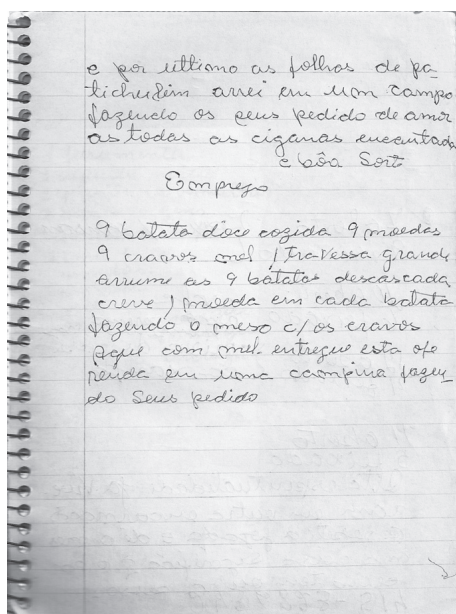 e por ultimo as folhas de pa-
tichulim arrei em um campo
fazendo os seus pedido de amor
as todas as ciganas encantada
e bôa Sort
Emprego
9 batata doce cozida 9 moedas
9 cravos mel 1 Travessa grande
arrume as 9 batatas descascada
crave 1 moeda em cada batata
fazendo o meso c/ os cravos
com mel entregue esta ofe
renda em uma campina fazen-
do Seus pedido